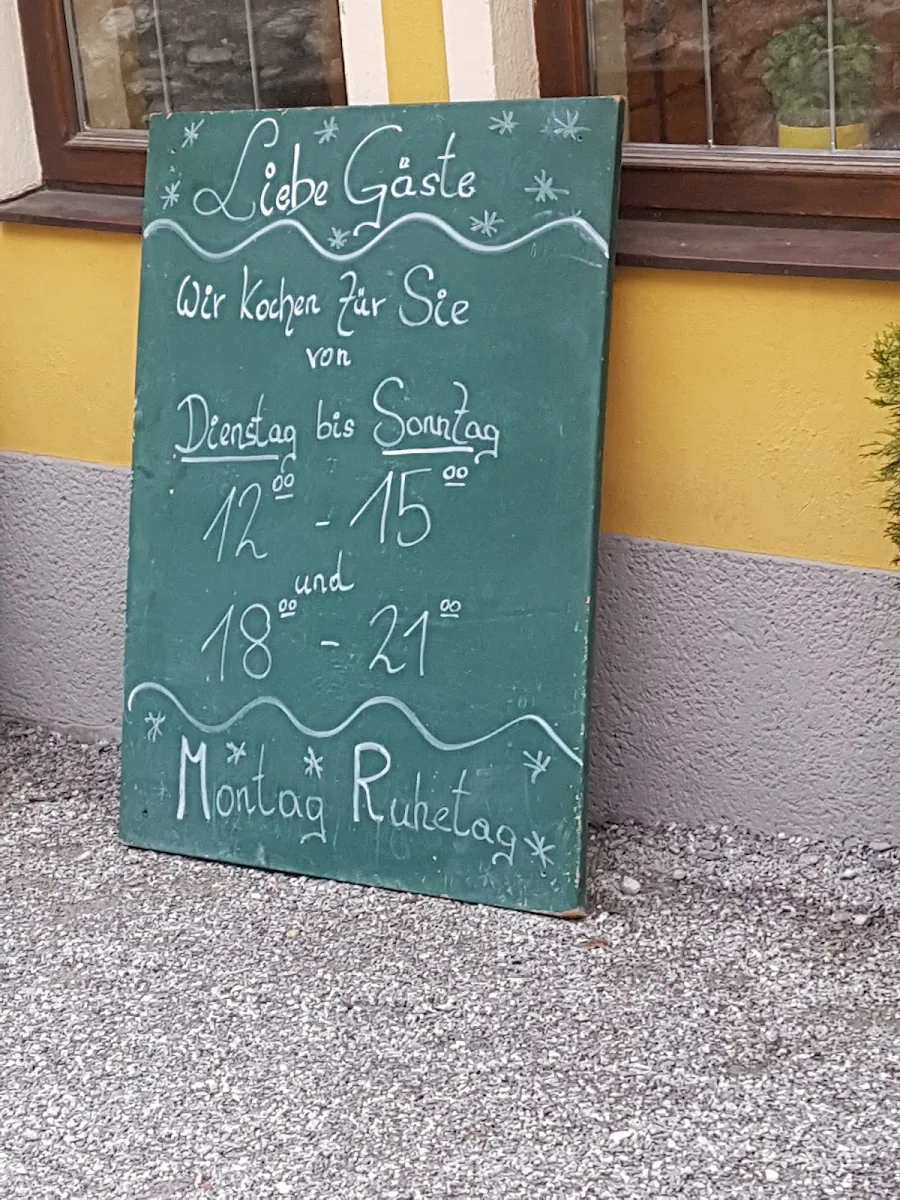 Liebe Gäste
Wir kochen für Sie
von
Dienstag bis Sonntag
12⁰⁰ - 15⁰⁰
und
18⁰⁰ - 21⁰⁰
Montag Ruhetag